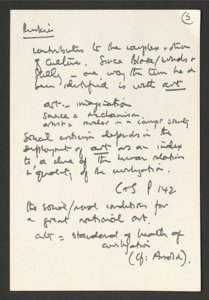 5
Ruskin
contributes to the complex notion
of Culture. Since Blake/Words. &
Shelley – one way the term had
been identified is with art
art – imagination
science = mechanism.
artist = in a corrupt society
Social criticism depends on the
deployment of art as an index
to, a clue of the human relations
& quality of the civilization.
C+S P 142
the social/moral conditions for
a great national art.
art = standard of health of
civilization
(cf: Arnold).